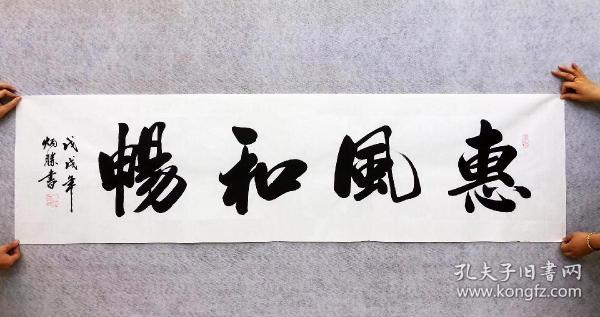 惠風和暢
戊戌年
炳勝書
孔夫子旧書网
www.kongfz.com